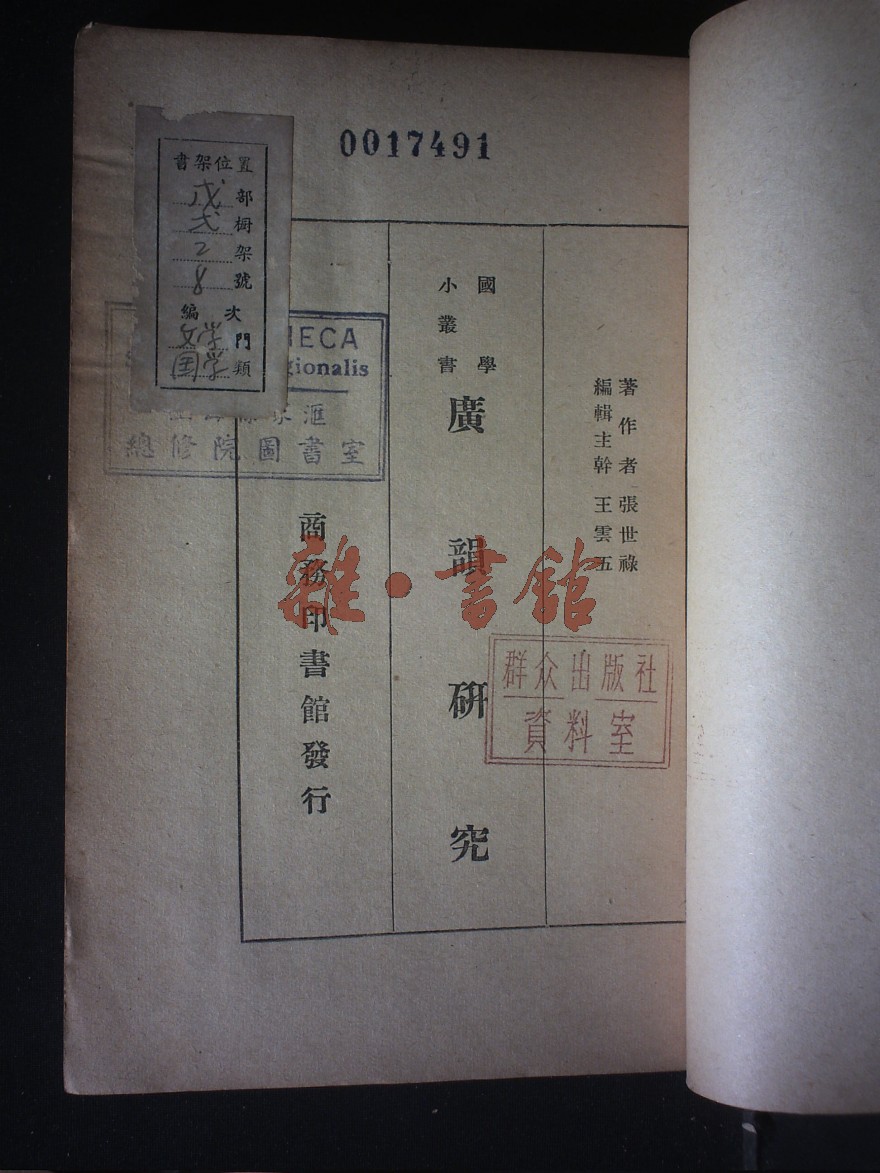 0017491
書架位置
戊部
弍橱
2架
8號
編次
文学門
国学類
HECA
gionalis
匯
總修院圖書室
著作者 張世祿
編輯主幹 王雲五
國學
小叢書
廣韻研究
商務印書館發行
雜·書館
群众出版社
資料室